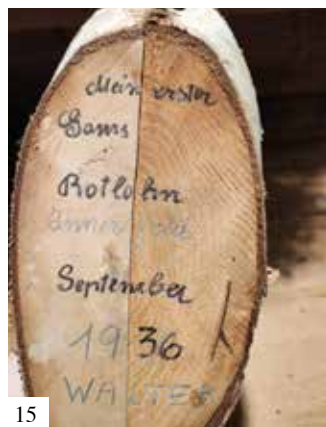 Mein erster
Gams
Rotlahn
September
1936
WALTER
15